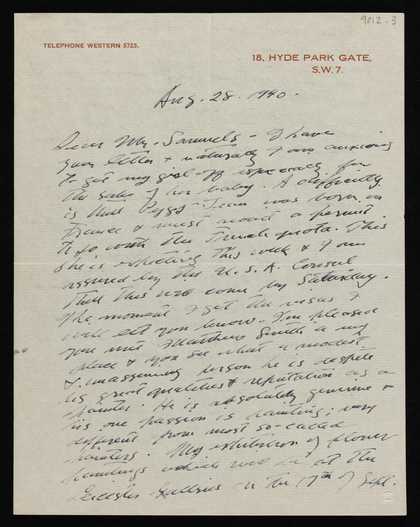 9012.3
TELEPHONE WESTERN 5725.
18, HYDE PARK GATE,
S.W.7.
Aug. 28. 1940.
Dear Mr. Samuels - I have
your letter & naturally I am anxious
to get my girl off especially for
the sake of her baby. A difficulty
is that Peggy-Jean was born in
France & must await a permit
to go with the French quota. This
she is expecting this week & I am
assured by the U.S.A. Consul
that this will come by Saturday.
The moment I get the visas I
will let you know. I'm pleased
you met Matthew Smith a my
place & you see what a modest
& unassuming person he is despite
his great qualities & reputation as a
painter. He is absolutely genuine &
his one passion is painting; very
different from most so-called
painters. My exhibition of flower
paintings which will be at the
Leicester Galleries in the 17th of Sept.